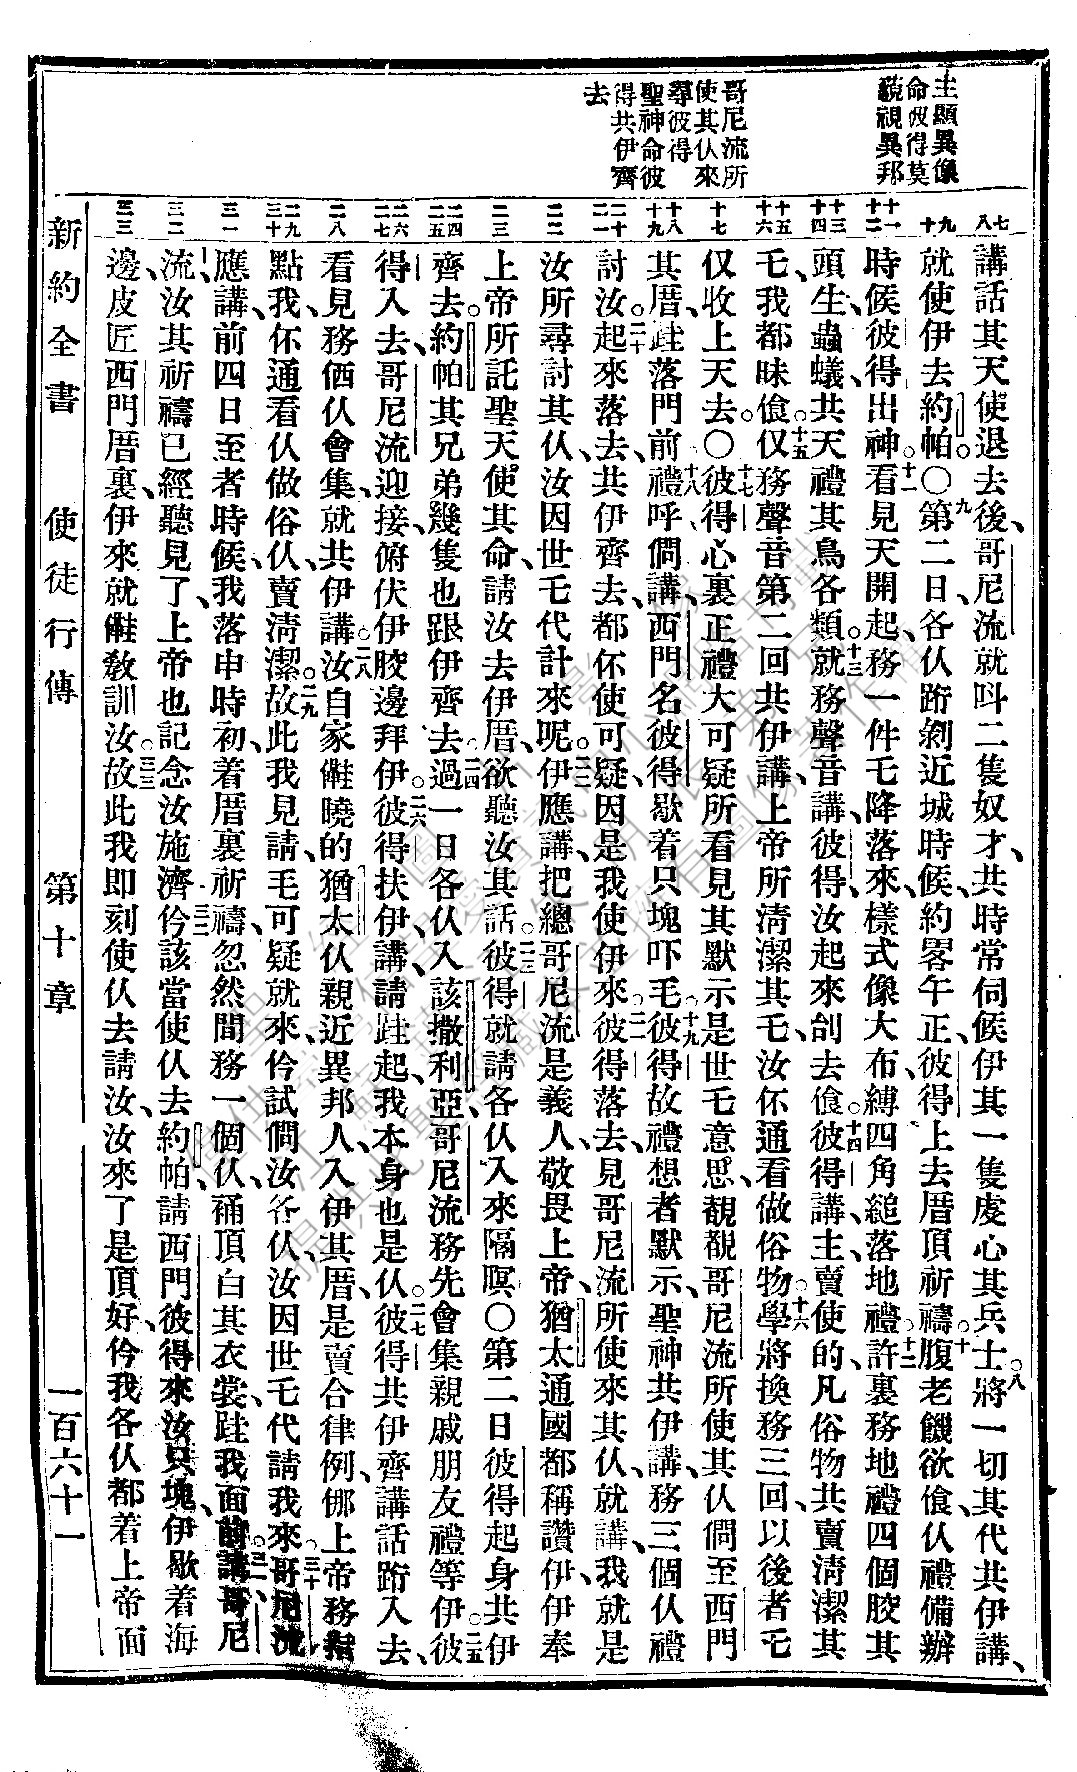 主顯異像
命彼得莫
藐視異邦
哥尼流所
使其仫來
尋彼得
聖神命彼
得共伊齊
去
七 八
九 十
十一 十二
十三 十四
十五 十六
十七
十八 十九
二十 二一
二二
二三
二四 二五
二六 二七
二八
二九 三十
三一
三二
三三
講話其天使退去後、哥尼流就呌二隻奴才、共時常伺候伊其一隻虔心其兵士。八將一切其代共伊講、
就使伊去約帕。○九第二日各仫跕剶近城時候、約畧午正、彼得上去厝頂祈禱。十腹老饑欲飡、仫禮備辦
時候、彼得出神。十一看見天開起、務一件乇降落來、樣式像大布、縛四角縋落地禮。十二許裏務地禮四個骹其
頭生、蟲蟻、共天禮其鳥各類。十三就務聲音講、彼得、汝起來刣去飡。十四彼得講、主、賣使的、凡俗物共賣清潔其
乇、我都昧飡。十五仅務聲音第二回共伊講、上帝所清潔其乇、汝伓通看做俗物。十六學將換務三回、以後者乇
仅收上天去。○十七彼得心裏正禮大可疑所看見其默示是世乇意思、覩覩哥尼流所使其仫僩至西門
其厝、跬落門前。十八禮呼僩講、西門名彼得歇着只塊吓毛。十九彼得故禮想者默示、聖神共伊講、務三個仫禮
討汝。二十起來落去、共伊齊去、都伓使可疑、因是我使伊來。二一彼得落去、見哥尼流所使來其仫、就講、我就是
汝所尋討其仫、汝因世乇代計來呢。二二伊應講、把總哥尼流是義人、敬畏上帝、猶太通國都稱讚伊、伊奉
上帝所託聖天使其命、請汝去伊厝、欲聽汝其話。二三彼得就請各仫入來隔暝。○第二日彼得起身共伊
齊去。約帕其兄弟幾隻也跟伊齊去。二四過一日各仫入該撒利亞、哥尼流務先會集親戚朋友禮等伊。二五彼
得入去、哥尼流迎接俯伏伊骹邊拜伊。二六彼得扶伊講、請跬起、我本身也是仫。二七彼得共伊齊講話跕入去、
看見務価仫會集、就共伊講。二八汝自家儺曉的猶太仫親近異邦人、入伊其厝、是賣合律例、㑚上帝務指
點我、伓通看仫做俗仫、賣清潔。二九故此我見請、毛可疑就來、仱試僩汝各仫、汝因世乇代請我來。三十哥尼流
應講、前四日至者時候、我落申時初、着厝裏祈禱、忽然間務一個仫、䘼頂白其衣裳、跬我面前講、三一哥尼
流、汝其祈禱已經聽見了、上帝也記念汝施濟。三二仱該當使仫去約帕、請西門彼得來汝只塊、伊歇着海
邊皮匠西門厝裏、伊來就儺教訓汝。三三故此我即刻使仫去請汝、汝來了是頂好、仱我各仫都着上帝面
新約全書 使徒行傳 第十章 一百六十一